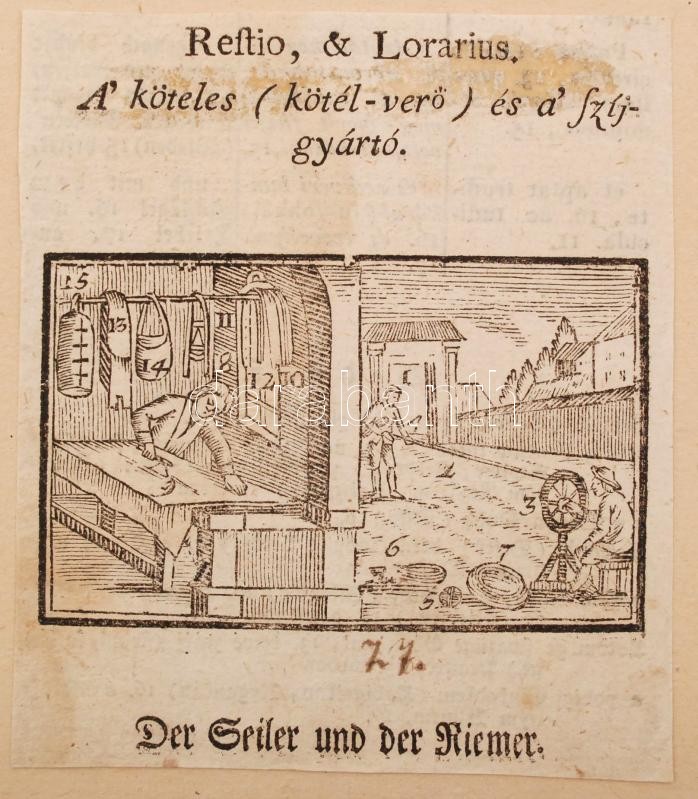 Reſtio, & Lorarius.
A' köteles ( kötél-verö ) és a' ſzíj-
gyártó.
15
13
14
11
12 10
1
3
6
7
5
darabanth
77.
Der Seiler und der Riemer.